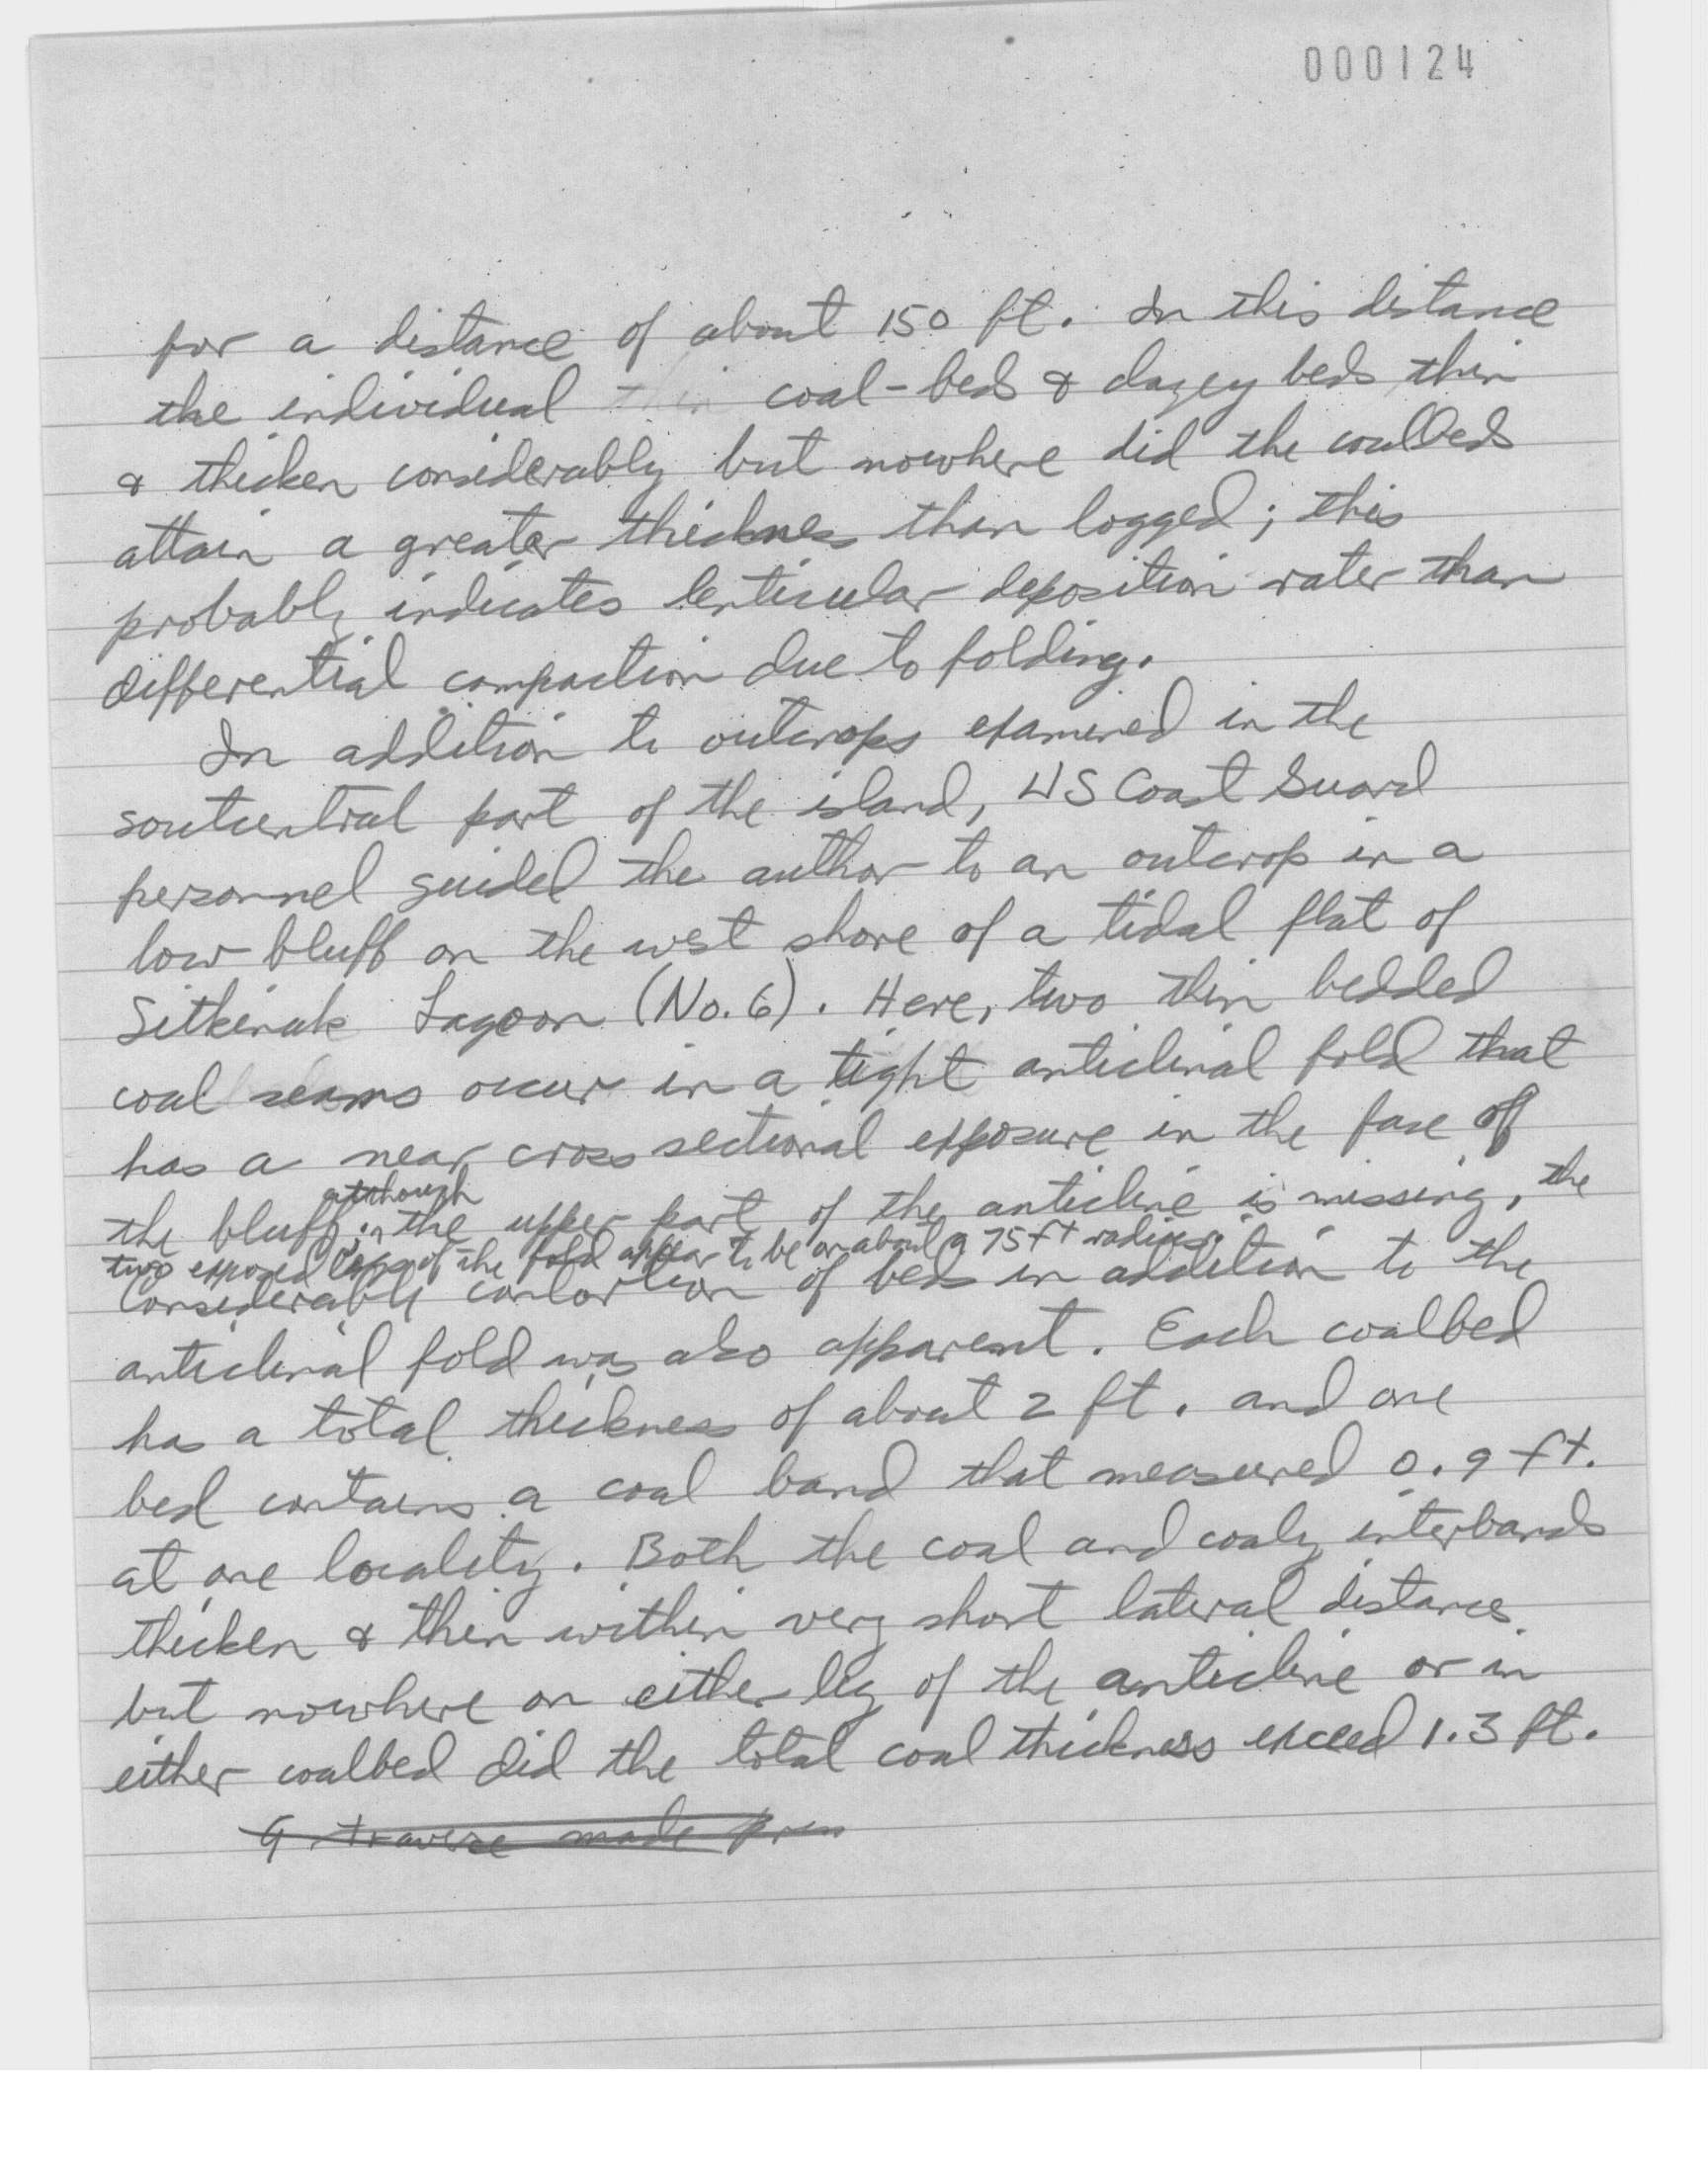 000124
for a distance of about 150 ft. In this distance
the individual thin coal-beds & clayey beds thin
& thicken considerably but nowhere did the coalbeds
attain a greater thickness than logged; this
probably indicates lenticular deposition rater than
differential compaction due to folding.
In addition to outcrops examined in the
soutcentral part of the island, US Coast Guard
personnel guided the author to an outcrop in a
low bluff on the west shore of a tidal flat of
Sitkinak Lagoon (No. 6). Here, two thin bedded
coal seams occur in a tight anticlinal fold that
has a near cross sectional exposure in the face of
although
the bluff; the upper part of the anticline is missing, the
two exposed legs of the fold appear to be on about a 75 ft radius.
Considerable contortion of beds in addition to the
anticlinal fold was also apparent. Each coalbed
has a total thickness of about 2 ft. and one
bed contains a coal band that measured 0.9 ft.
at one locality. Both the coal and coaly interbands
thicken & thin within very short lateral distances
but nowhere on either leg of the anticline or in
either coalbed did the total coal thickness exceed 1.3 ft.
A traverse made from